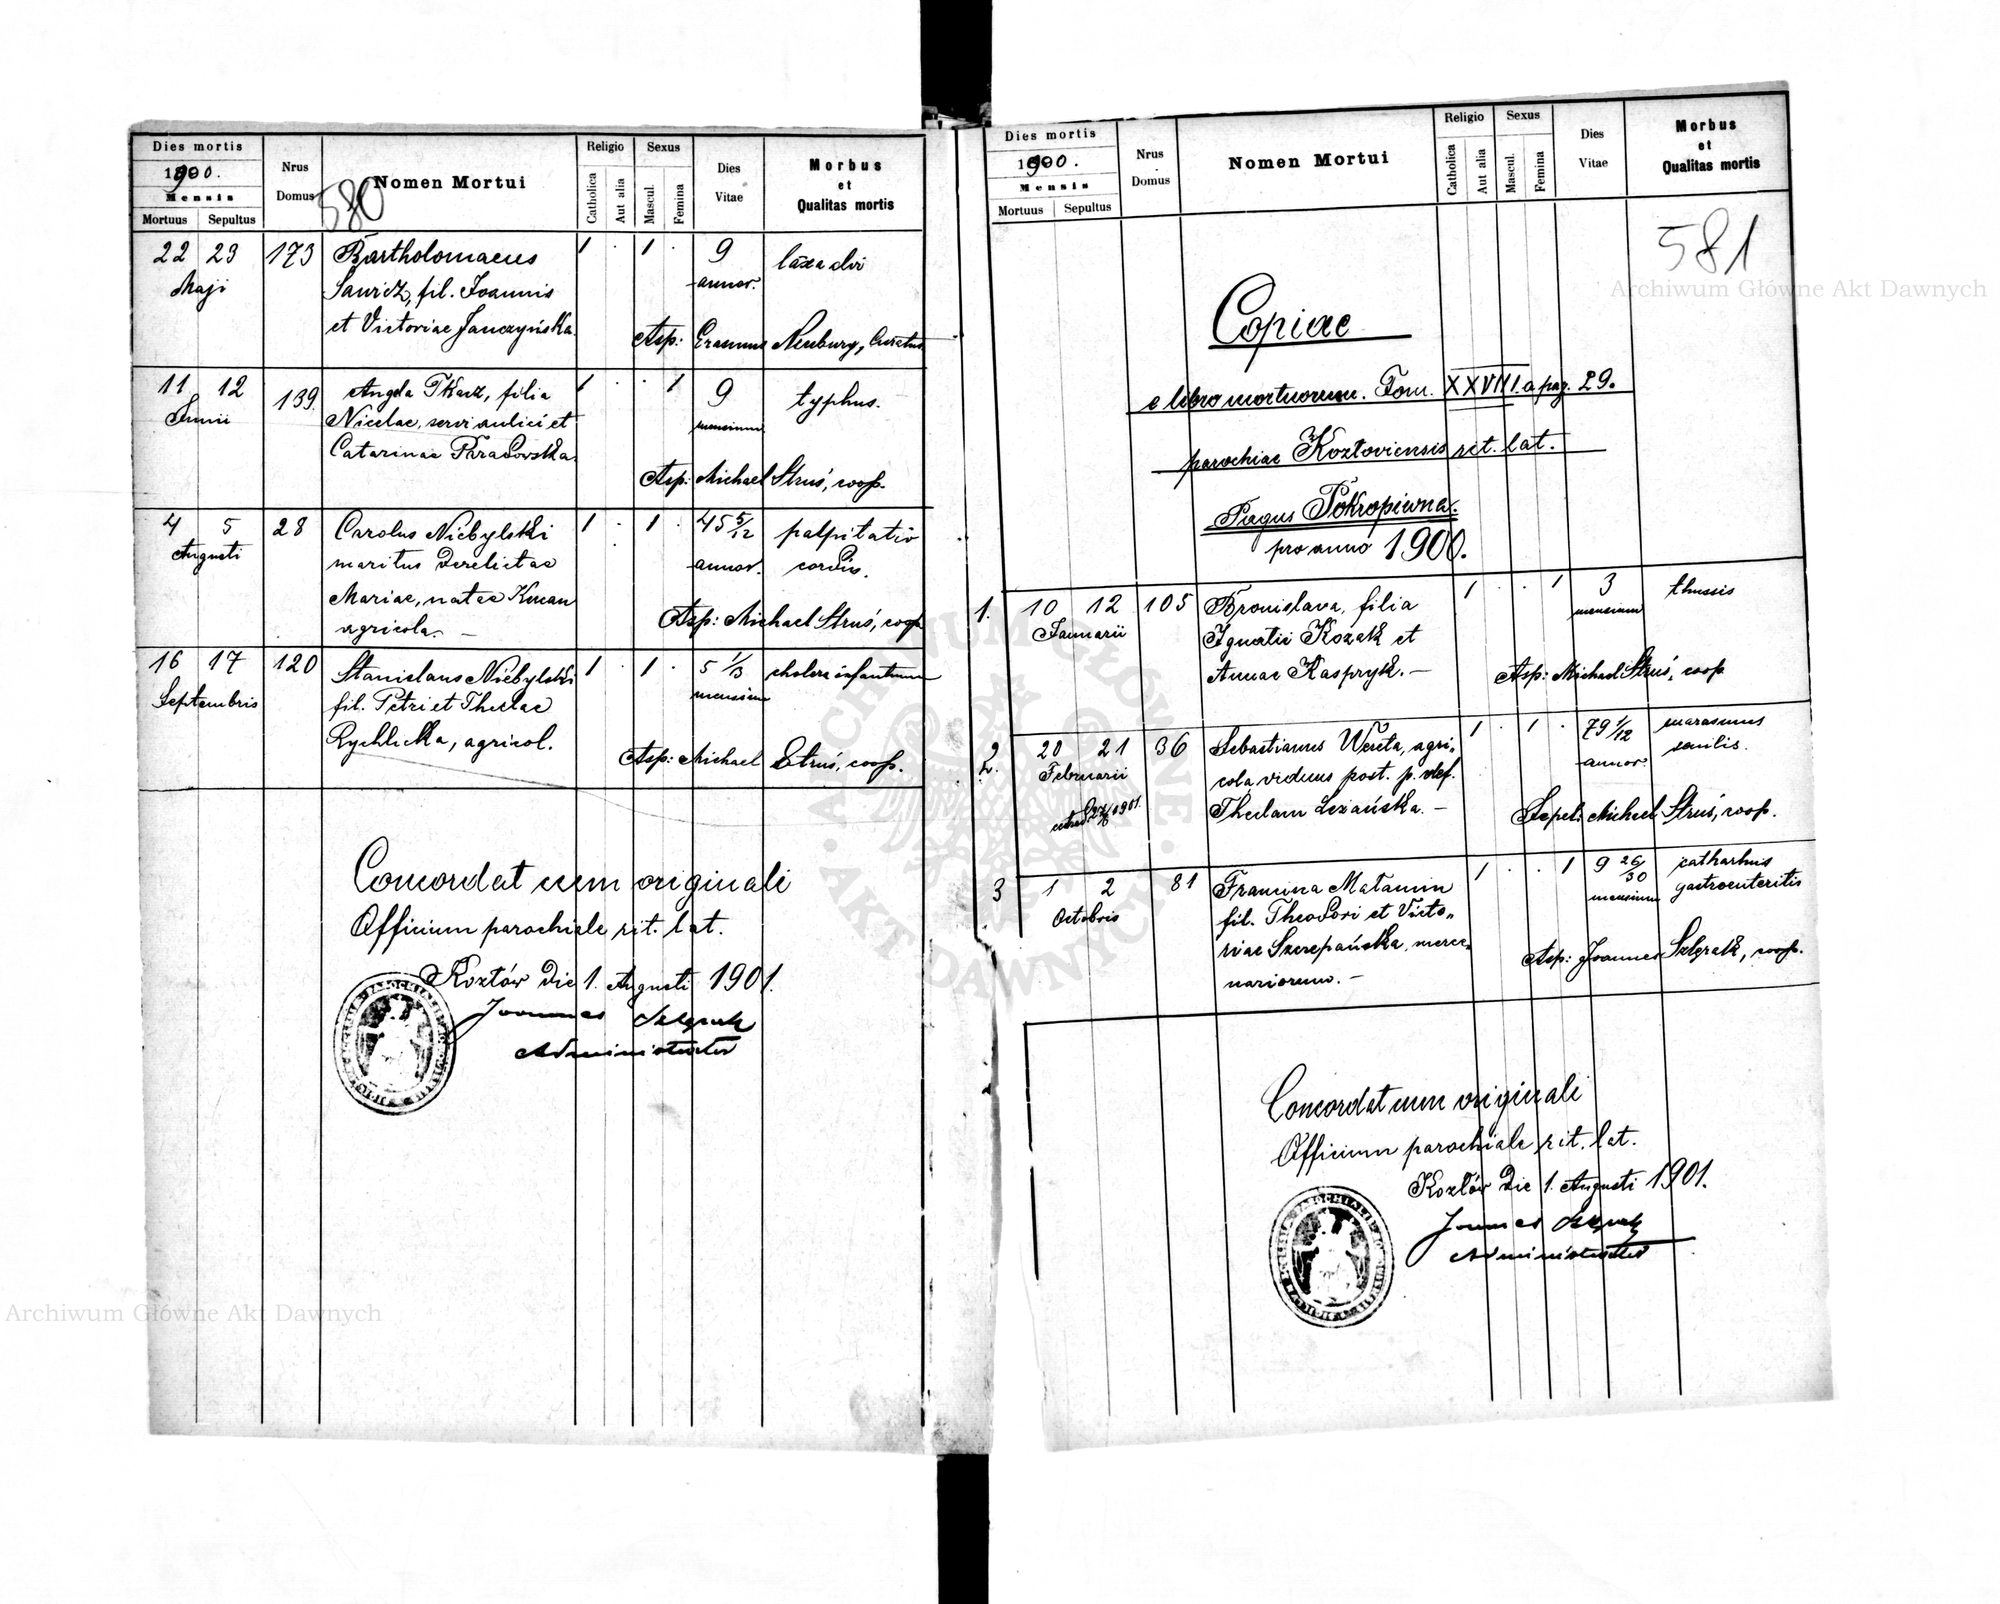 Dies mortis
1900.
Mensis
Mortuus Sepultus
Nrus Domus
580
Nomen Mortui
Religio
Catholica Aut alia
Sexus
Mascul. Femina
Dies Vitae
Morbus
et
Qualitas mortis
22 23 173 Bartholomaeus 1 . 1 . 9 laxa alvi
Maji Sawicz, fil. Joannis annor.
et Victoriae Janczyńska
Asp: Erasmus Neuburg, Curatus
11 12 139. Angela Tkacz, filia 1 . . 1 9 typhus.
Junii Nicolae, servi aulici et mensium
Catarinae Paradowska
Asp: Michael Struś, coop.
4 5 28 Carolus Niebylski 1 . 1 . 45 5/12 palpitatio
Augusti maritus derelictae annor. cordis.
Mariae, natae
agricola. —
Asp: Michael Struś, coop
16 17 120 Stanislaus Niebylski 1 . 1 . 5 1/3 cholera infantum
Septembris fil. Petri et Theclae mensium
Rychlicka, agricol.
Asp: Michael Struś, coop.
Concordat cum originali
Officium parochiale rit. lat.
Kozłów die 1. Augusti 1901.
Joannes
Administrator
Dies mortis
1900.
Mensis
Mortuus Sepultus
Nrus Domus
Nomen Mortui
Religio
Catholica Aut alia
Sexus
Mascul. Femina
Dies Vitae
Morbus
et
Qualitas mortis
581
Archiwum Główne Akt Dawnych
Copiae
e libro mortuorum. Tom. XXVIII. a pag. 29.
parochiae Kozłoviensis rit. lat.
Pagus Pokropiwna.
pro anno 1900.
1. 10 12 105 Bronislava, filia 1 . . 1 3 thussis
Januarii Ignatii Kozak et mensium
Annae Kaspryk. —
Asp: Michael Struś, coop
2. 20 21 36 Sebastianus Wereta, agri„ 1 . 1 . 79 1/12 marasmus
Februarii cola viduus post. p. def. annor. senilis.
Theclam Leżańska. —
Sepel: Michael Struś, coop.
3 1 2 81 Francina Matamin 1 . . 1 9 26/30 catharhus
Octobris fil. Theodori et Victo„ mensium gastroenteritis
riae Szczepańska, merce„
nariorum. —
Asp: Joannes coop.
Concordat cum originali
Officium parochiale rit. lat.
Kozłów die 1. Augusti 1901.
Joannes
Administrator
ARCHIWUM GŁÓWNE AKT DAWNYCH
Archiwum Główne Akt Dawnych